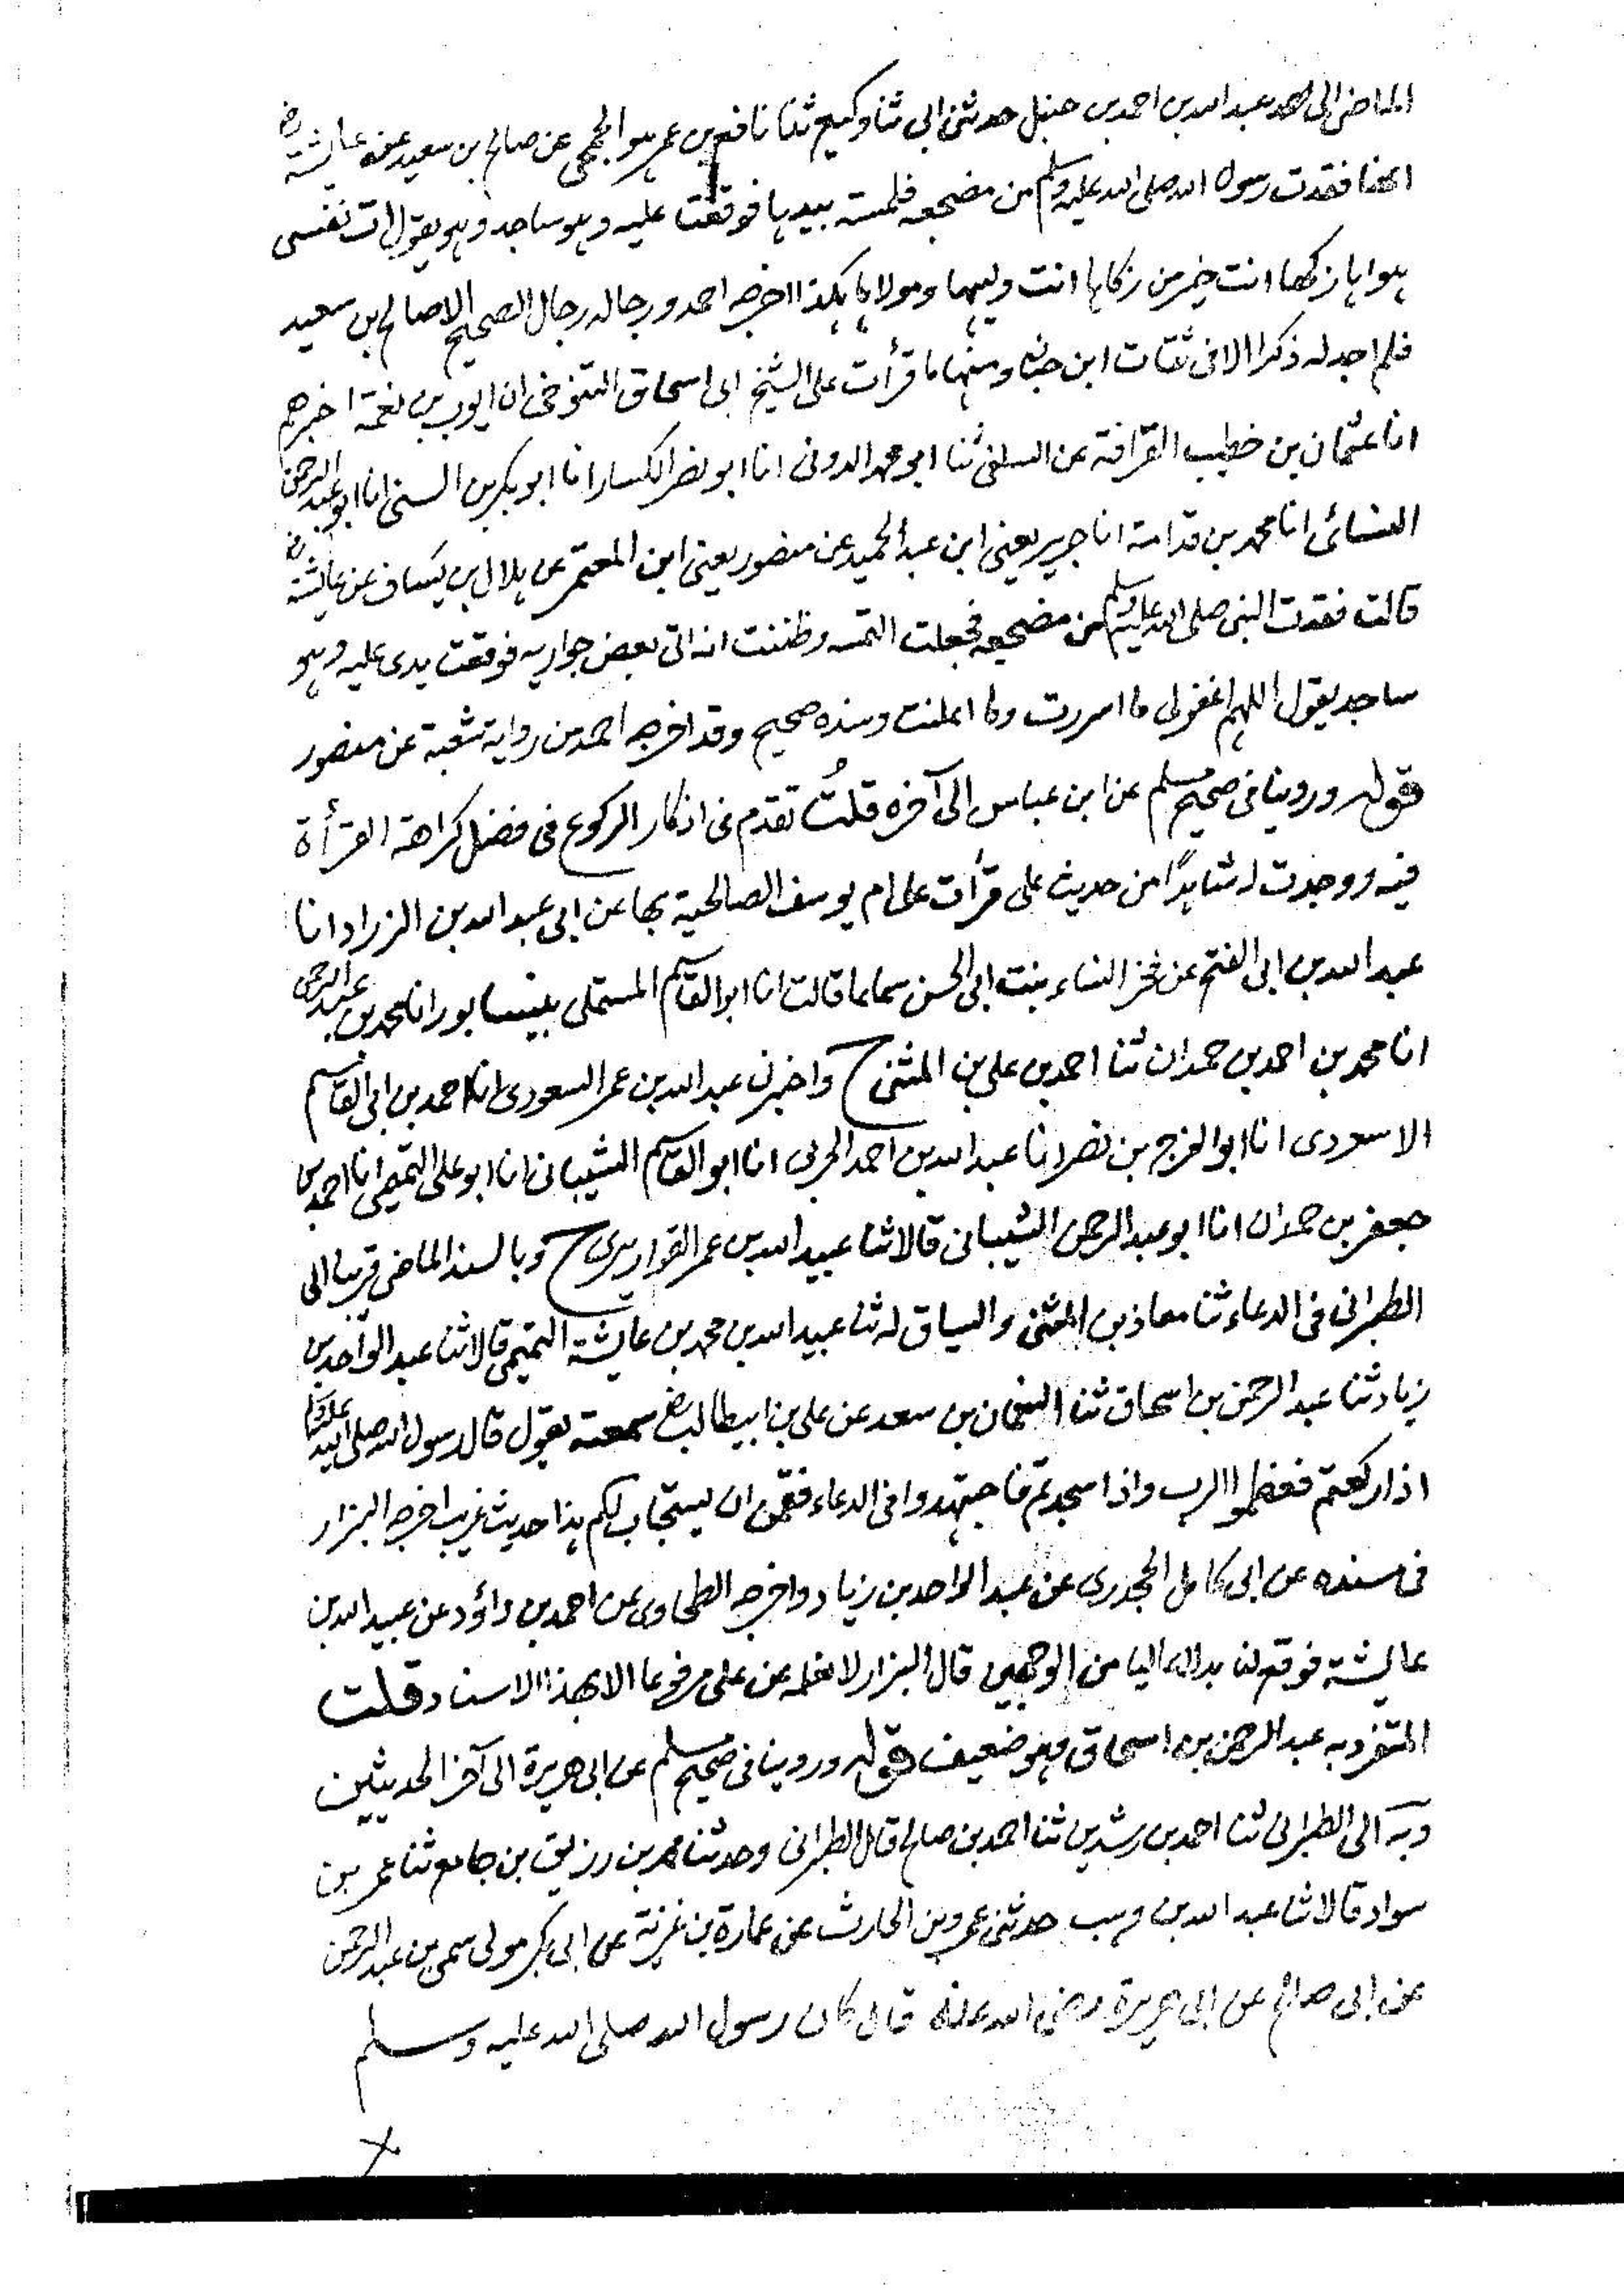 الماضى الى عبد الله بن احمد بن حنبل حدثنى ابى ثنا وكيع ثنا نافع بن عمر هو الجمحى عن صالح بن سعيد عن عايشة رض
انها فقدت رسول الله صلى الله عليه وسلم من مضجعه فلمسته بيدها فوقعت عليه وهو ساجد وهو يقول ات نفسى
هواها زكها انت خير من زكاها انت وليها ومولاها هكذا اخرجه احمد ورجاله رجال الصحيح الا صالح بن سعيد
فلم اجد له ذكرا الا فى ثقات ابن حبان ومنها ما قرأت على الشيخ ابى اسحاق التنوخى ان ايوب بن نعمة اخبرهم
انا عثمان بن خطيب القرافة عن السلفى ثنا ابو محمد الدونى انا ابو نصر الكسار انا ابو بكر بن السنى انا ابو عبد الرحمن
النسائى انا محمد بن قدامة انا جرير يعنى ابن عبد الحميد عن منصور يعنى ابن المعتمر عن هلال بن يساف عن عايشة رض
قالت فقدت النبى صلى الله عليه وسلم من مضجعه فجعلت التمسه وظننت انه اتى بعض جواريه فوقعت يدى عليه وهو
ساجد يقول اللهم اغفر لى ما اسررت وما اعلنت وسنده صحيح وقد اخرجه احمد من رواية شعبة عن منصور
قوله وروينا فى صحيح مسلم عن ابن عباس الى آخره قلتُ تقدم فى اذكار الركوع فى فصل كراهة القرأة
فيه ووجدت له شاهدًا من حديث على قرأت على ام يوسف الصالحية بها عن ابى عبد الله بن الزراد انا
عبد الله بن ابى الفتح عن فخر النساء بنت ابى الحسن سماعا قالت انا ابو القاسم المستملى بنيسابور انا محمد بن عبد الرحمن
انا محمد بن احمد بن حمدان ثنا احمد بن على بن المثنى ح واخبرنى عبد الله بن عمر السعودى انا احمد بن ابى القاسم
الاسعردى انا ابو الفرج بن نصر انا عبد الله بن احمد الحربى انا ابو القاسم الشيبانى انا ابو على التميمى انا احمد بن
جعفر بن حمدان انا ابو عبد الرحمن الشيبانى قالا ثنا عبيد الله بن عمر القواريرى ح وبالسند الماضى قريبا الى
الطبرانى فى الدعاء ثنا معاذ بن المثنى والسياق له ثنا عبيد الله بن محمد بن عايشة التيمى قالا ثنا عبد الواحد بن
زياد ثنا عبد الرحمن بن اسحاق ثنا النعمان بن سعد عن على بن ابيطالب رض سمعته يقول قال رسول الله صلى الله عليه وسلم
اذا ركعتم فعظموا الرب واذا سجدتم فاجتهدوا فى الدعاء فقمن ان يستجاب لكم هذا حديث غريب اخرجه البزار
فى مسنده عن ابى كامل الجحدرى عن عبد الواحد بن زياد واخرجه الطحاوى عن احمد بن داؤد عن عبيد الله بن
عايشة فوقع لنا بدلا عاليا من الوجهين قال البزار لا نعلمه عن على مرفوعا الا بهذا الاسناد قلت
المتفرد به عبد الرحمن بن اسحاق وهو ضعيف قوله وروينا فى صحيح مسلم عن ابى هريرة الى آخر الحديثين
وبه الى الطبرانى ثنا احمد بن رشدين ثنا احمد بن صالح قال الطبرانى وحدثنا محمد بن رزيق بن جامع ثنا عمر بن
سواد قالا ثنا عبد الله بن وهب حدثنى عمرو بن الحارث عن عمارة بن غزية عن ابى بكر مولى سمى بن عبد الرحمن
عن ابى صالح عن ابى هريرة رضى الله عنه قال كان رسول الله صلى الله عليه وسلم